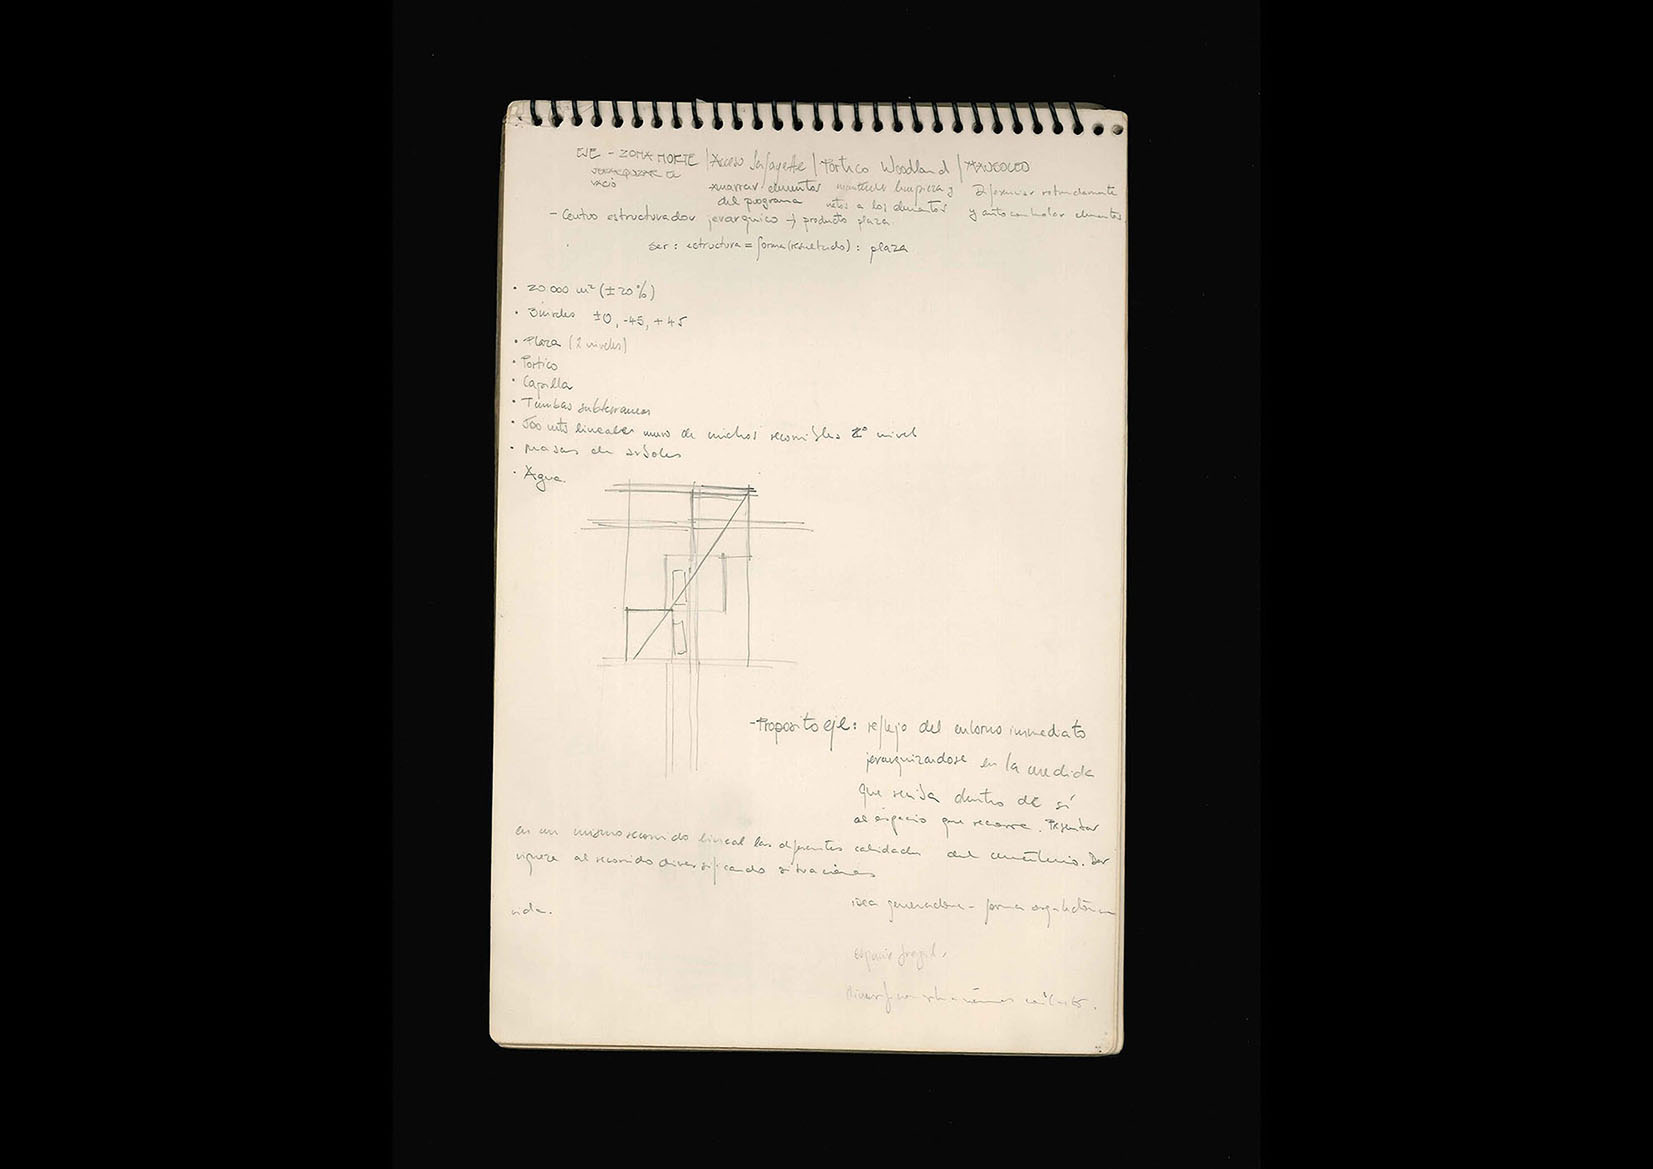 EJE - ZONA NORTE | Acceso Lafayette | Pórtico Woodland | MAUSOLEO
JERARQUIZAR EL VACIO
narrar elementos del programa
limpieza y netos a los elementos
Diferenciar rotundamente y autocontrolar elementos
- Centro estructurador jerarquico → producto plaza.
ser : estructura = forma (resultado) : plaza
· 20.000 m² (±20%)
· 3 niveles ±0, -45, +45
· Plaza (2 niveles)
· Pórtico
· Capilla
· Tumbas subterraneas
· 500 mts lineales muro de nichos recorribles 2º nivel
· masas de arboles
· Agua.
- Proposito eje: reflejo del entorno immediato
jerarquizandose en la medida
que reciba dentro de sí
al espacio que recorre. Presentar
en un mismo recorrido lineal las diferentes calidades del cementerio. Dar
riqueza al recorrido diversificando situaciones
idea generadora - forma arquitectónica
vida.
espacio